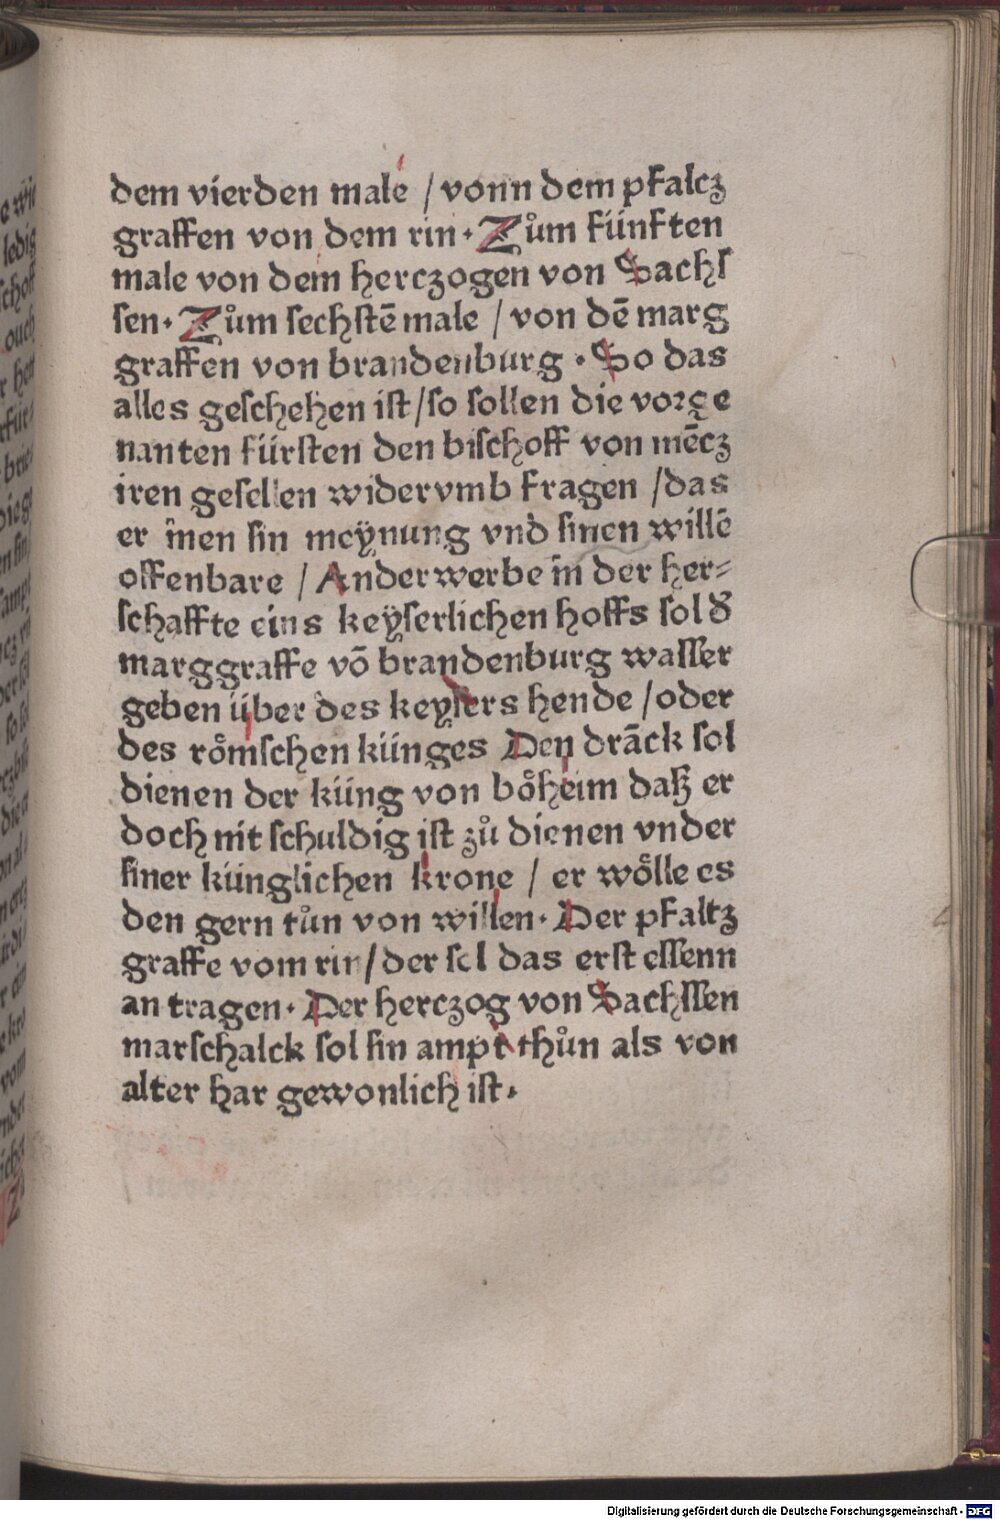 dem vierden male / vonn dem pfalcz
graffen von dem rin · Zům fünften
male von dem herczogen von Sachſ
ſen · Zům ſechſtē male / von dē marg
graffen von brandenburg · So das
alles geſchehen iſt / ſo ſollen die vorge
nanten fürſten den biſchoff von mēcz
iren geſellen widervmb fragen / das
er īnen ſin meÿnung vnd ſinen willē
offenbare / Anderwerbe in der her⸗
ſchaffte eins keÿſerlichen hoffs ſol đ
marggraffe vō brandenburg waſſer
geben über des keyſers hende / oder
des roͤmſchen künges Den drāck ſol
dienen der küng von boͤheim daß er
doch nit ſchuldig iſt zů dienen vnder
ſiner künglichen krone / er woͤlle es
den gern tůn von willen · Der pfaltz
graffe vom rin / der ſol das erſt eſſenn
an tragen · Der herczog von Sachſſen
marſchalck ſol ſin ampt thůn als von
alter har gewonlich iſt ·
Digitalisierung gefördert durch die Deutsche Forschungsgemeinschaft - DFG